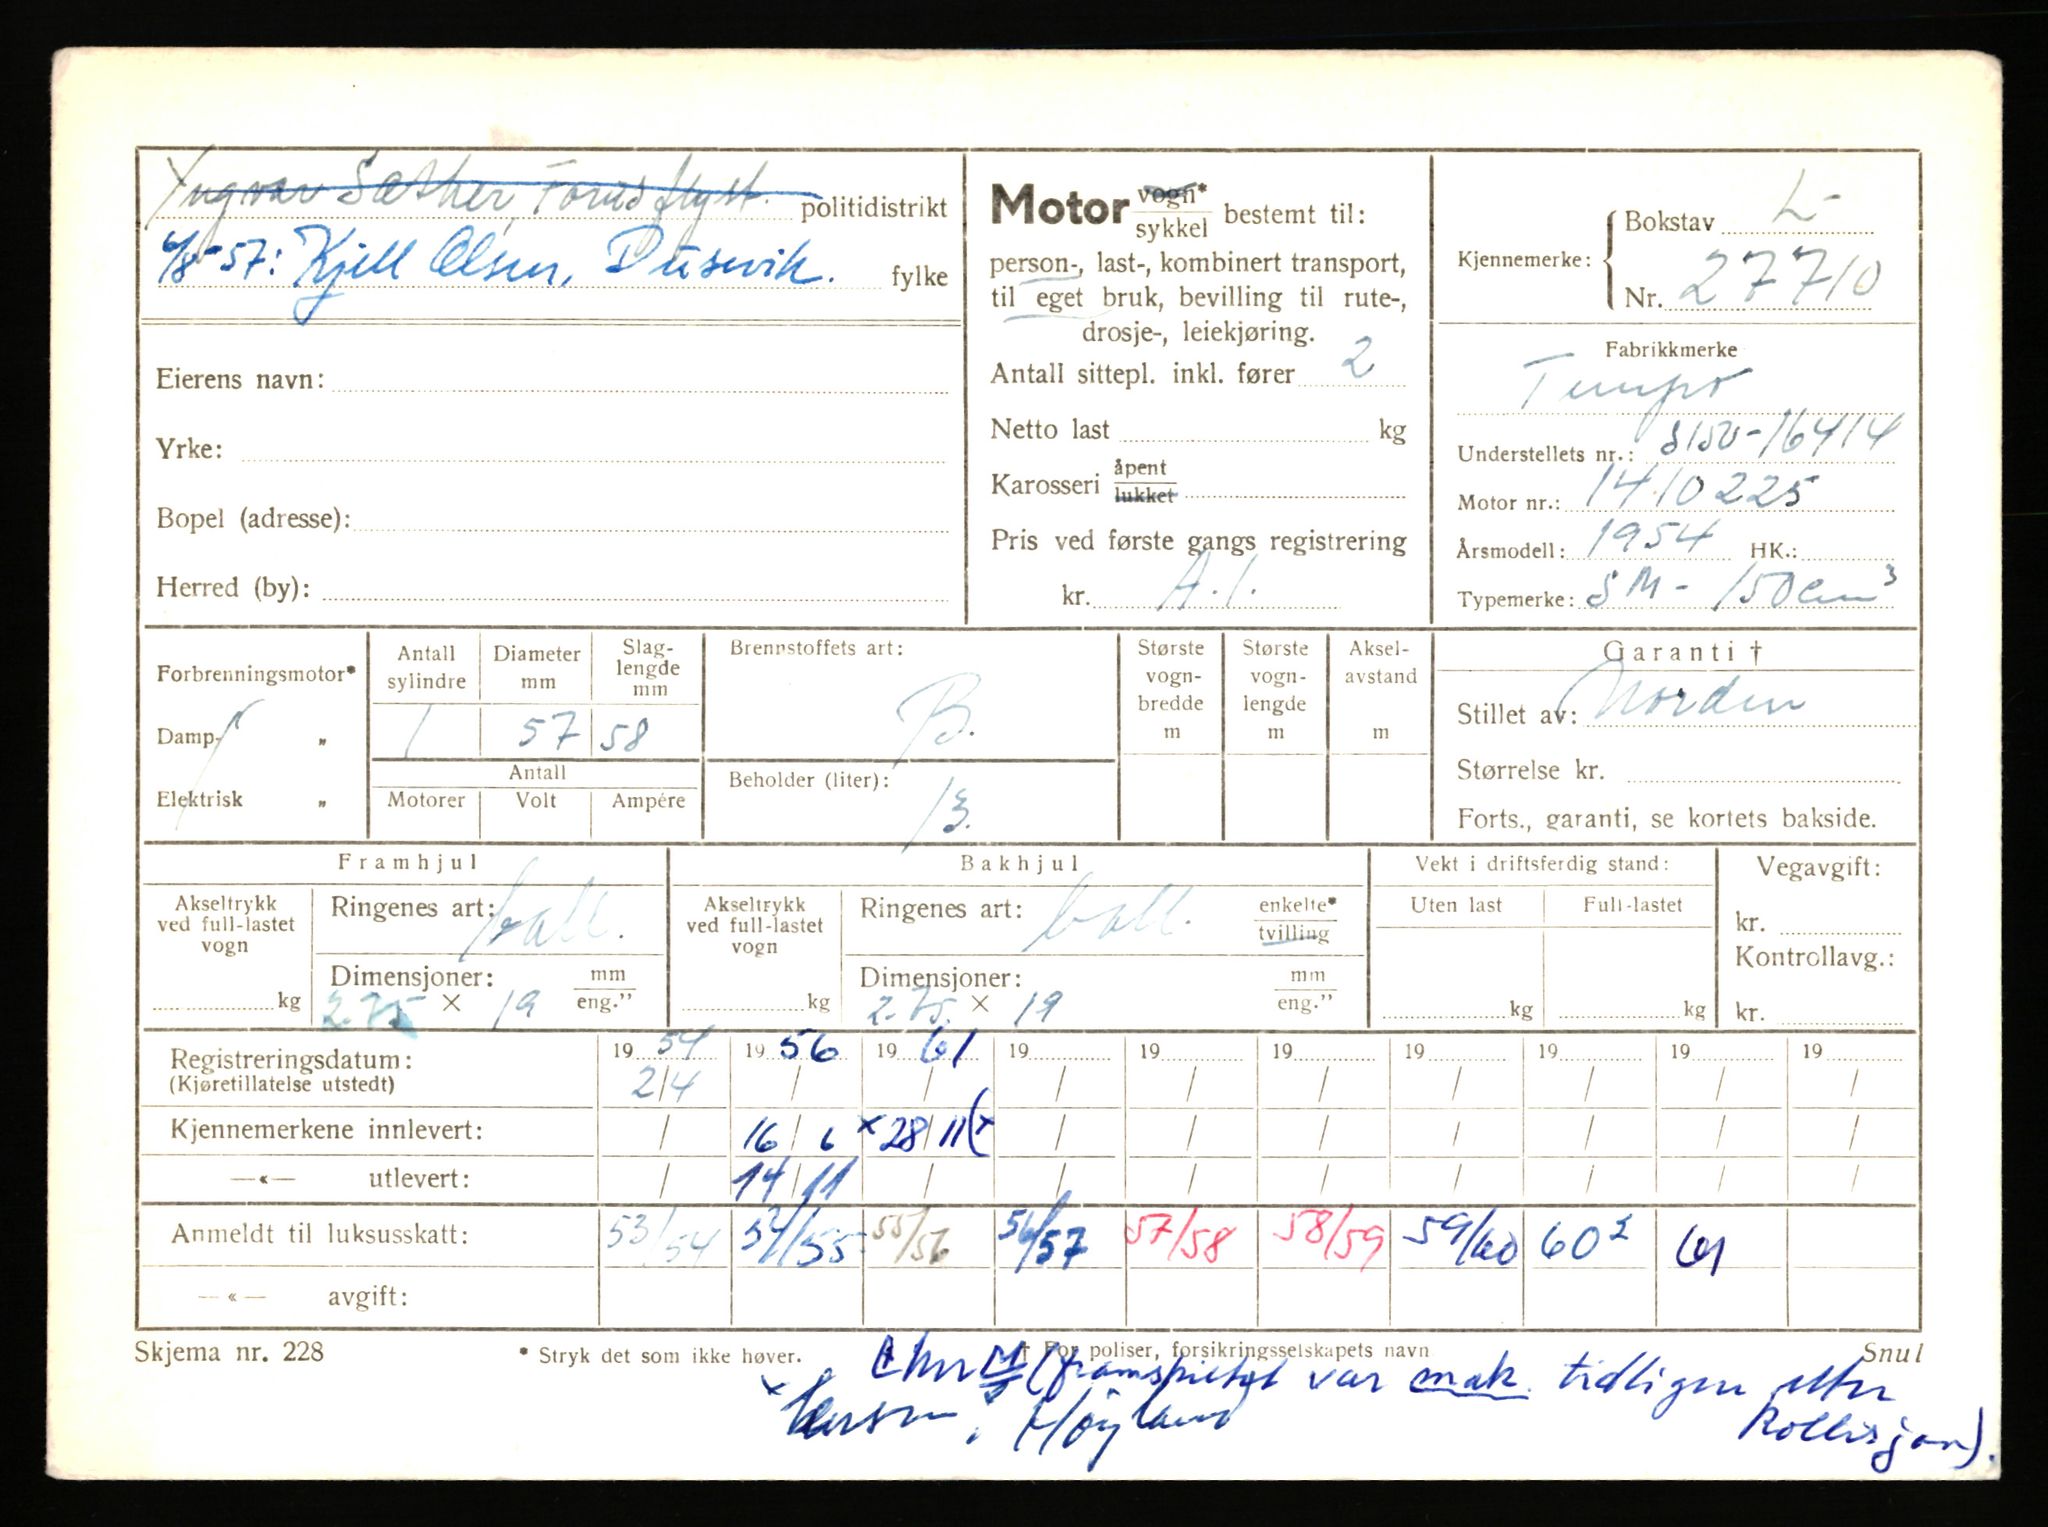 Yngvar Sæther, Forus flypl. politidistrikt
6/8-57: Kjell Olsen, Dusevik. fylke
Eierens navn:
Yrke:
Bopel (adresse):
Herred (by):
Motor vogn* sykkel bestemt til:
person-, last-, kombinert transport,
til eget bruk, bevilling til rute-,
drosje-, leiekjøring.
Antall sittepl. inkl. fører 2
Netto last kg
Karosseri åpent lukket
Pris ved første gangs registrering
kr. A.1.
Kjennemerke: Bokstav L-
Nr. 27710
Fabrikkmerke
Tempo
Understellets nr.: S150-16414
Motor nr.: 1410225
Årsmodell: 1954 HK.:
Typemerke: SM - 150 cm³
Forbrenningsmotor*
Damp- „
Elektrisk „
Antall sylindre
Diameter mm
Slag-lengde mm
1 57 58
Antall
Motorer Volt Ampére
Brennstoffets art:
B.
Beholder (liter):
13.
Største vogn-bredde m
Største vogn-lengde m
Aksel-avstand m
Garanti †
Stillet av: Norden
Størrelse kr.
Forts., garanti, se kortets bakside.
Framhjul
Akseltrykk ved full-lastet vogn
kg
Ringenes art: ball.
Dimensjoner: mm eng."
2.75 × 19
Bakhjul
Akseltrykk ved full-lastet vogn
kg
Ringenes art: ball. enkelte* tvilling
Dimensjoner: mm eng."
2.75. × 19
Vekt i driftsferdig stand:
Uten last Full-lastet
kg kg
Vegavgift:
kr.
Kontrollavg.:
kr.
Registreringsdatum: 19 54 19 56 19 61 19 19 19 19 19 19 19
(Kjøretillatelse utstedt) 2/4 / / / / / / / / /
Kjennemerkene innlevert: / 16/6 x 28/11 (x / / / / / / /
—«— utlevert: / 14/11 / / / / / / / /
Anmeldt til luksusskatt: 53/54 54/55 55/56 56/57 57/58 58/59 59/60 60² 61
—«— avgift:
Skjema nr. 228 * Stryk det som ikke høver. † For poliser, forsikringsselskapets navn Snul
(framskiltet var mak. tidligere etter
Høyland kollisjon).